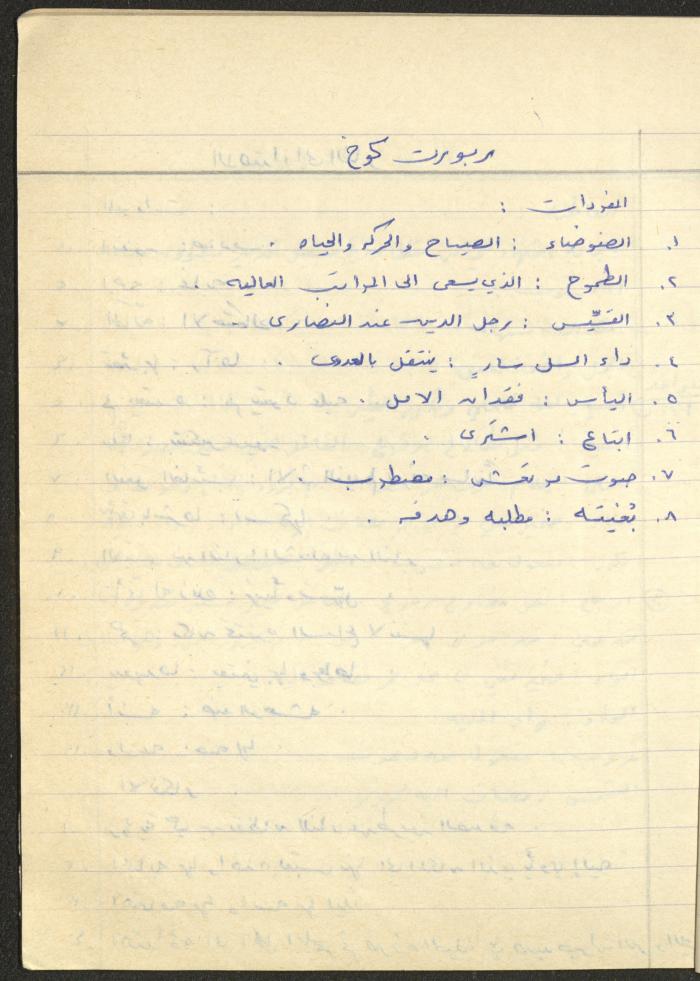 روبرت كوخ
المفردات :
١. الضوضاء : الصياح والحركه والحياه .
٢. الطموح : الذي يسعى الى المراتب العاليه
٣. القسّيس : رجل الدين عند النصارى
٤. داء السل سارٍ : ينتقل بالعدوى .
٥. اليأس : فقدان الامل .
٦. ابتاع : اشترى .
٧. صوت مرتعش : مضطرب .
٨. بُغيته : مطلبه وهدفه .